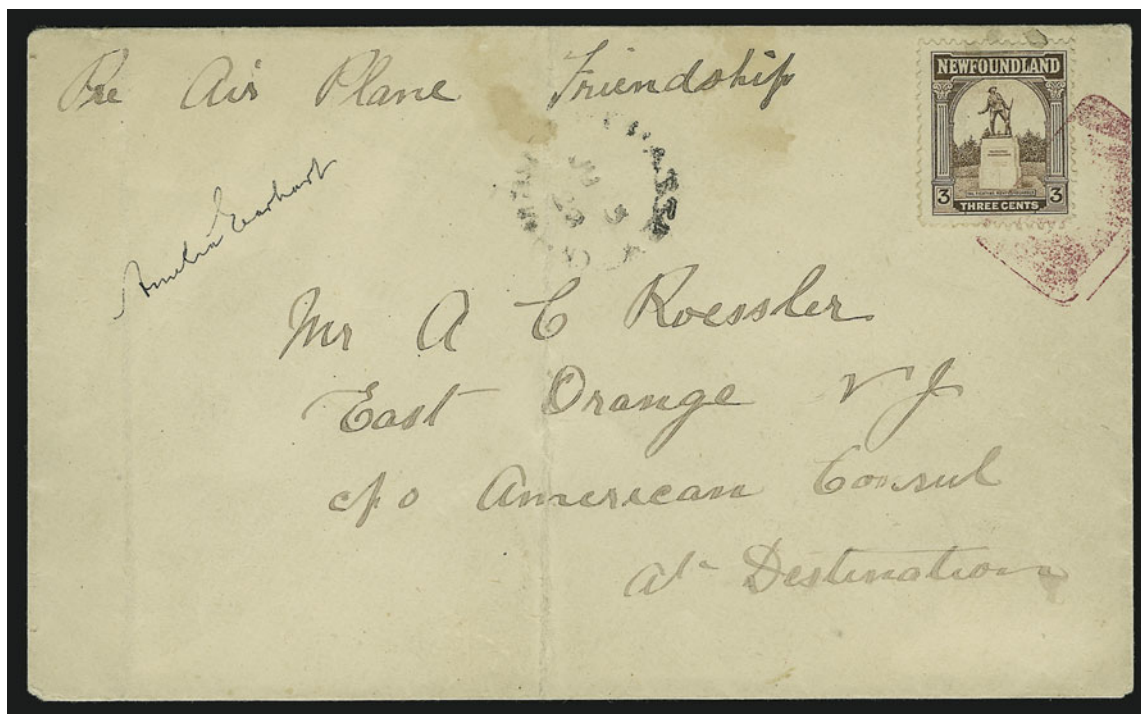 Pre Air Plane Friendship
NEWFOUNDLAND
3 THREE CENTS 3
Amelia Earhart
Mr A C Roessler
East Orange N J
c/o American Consul
at Destination